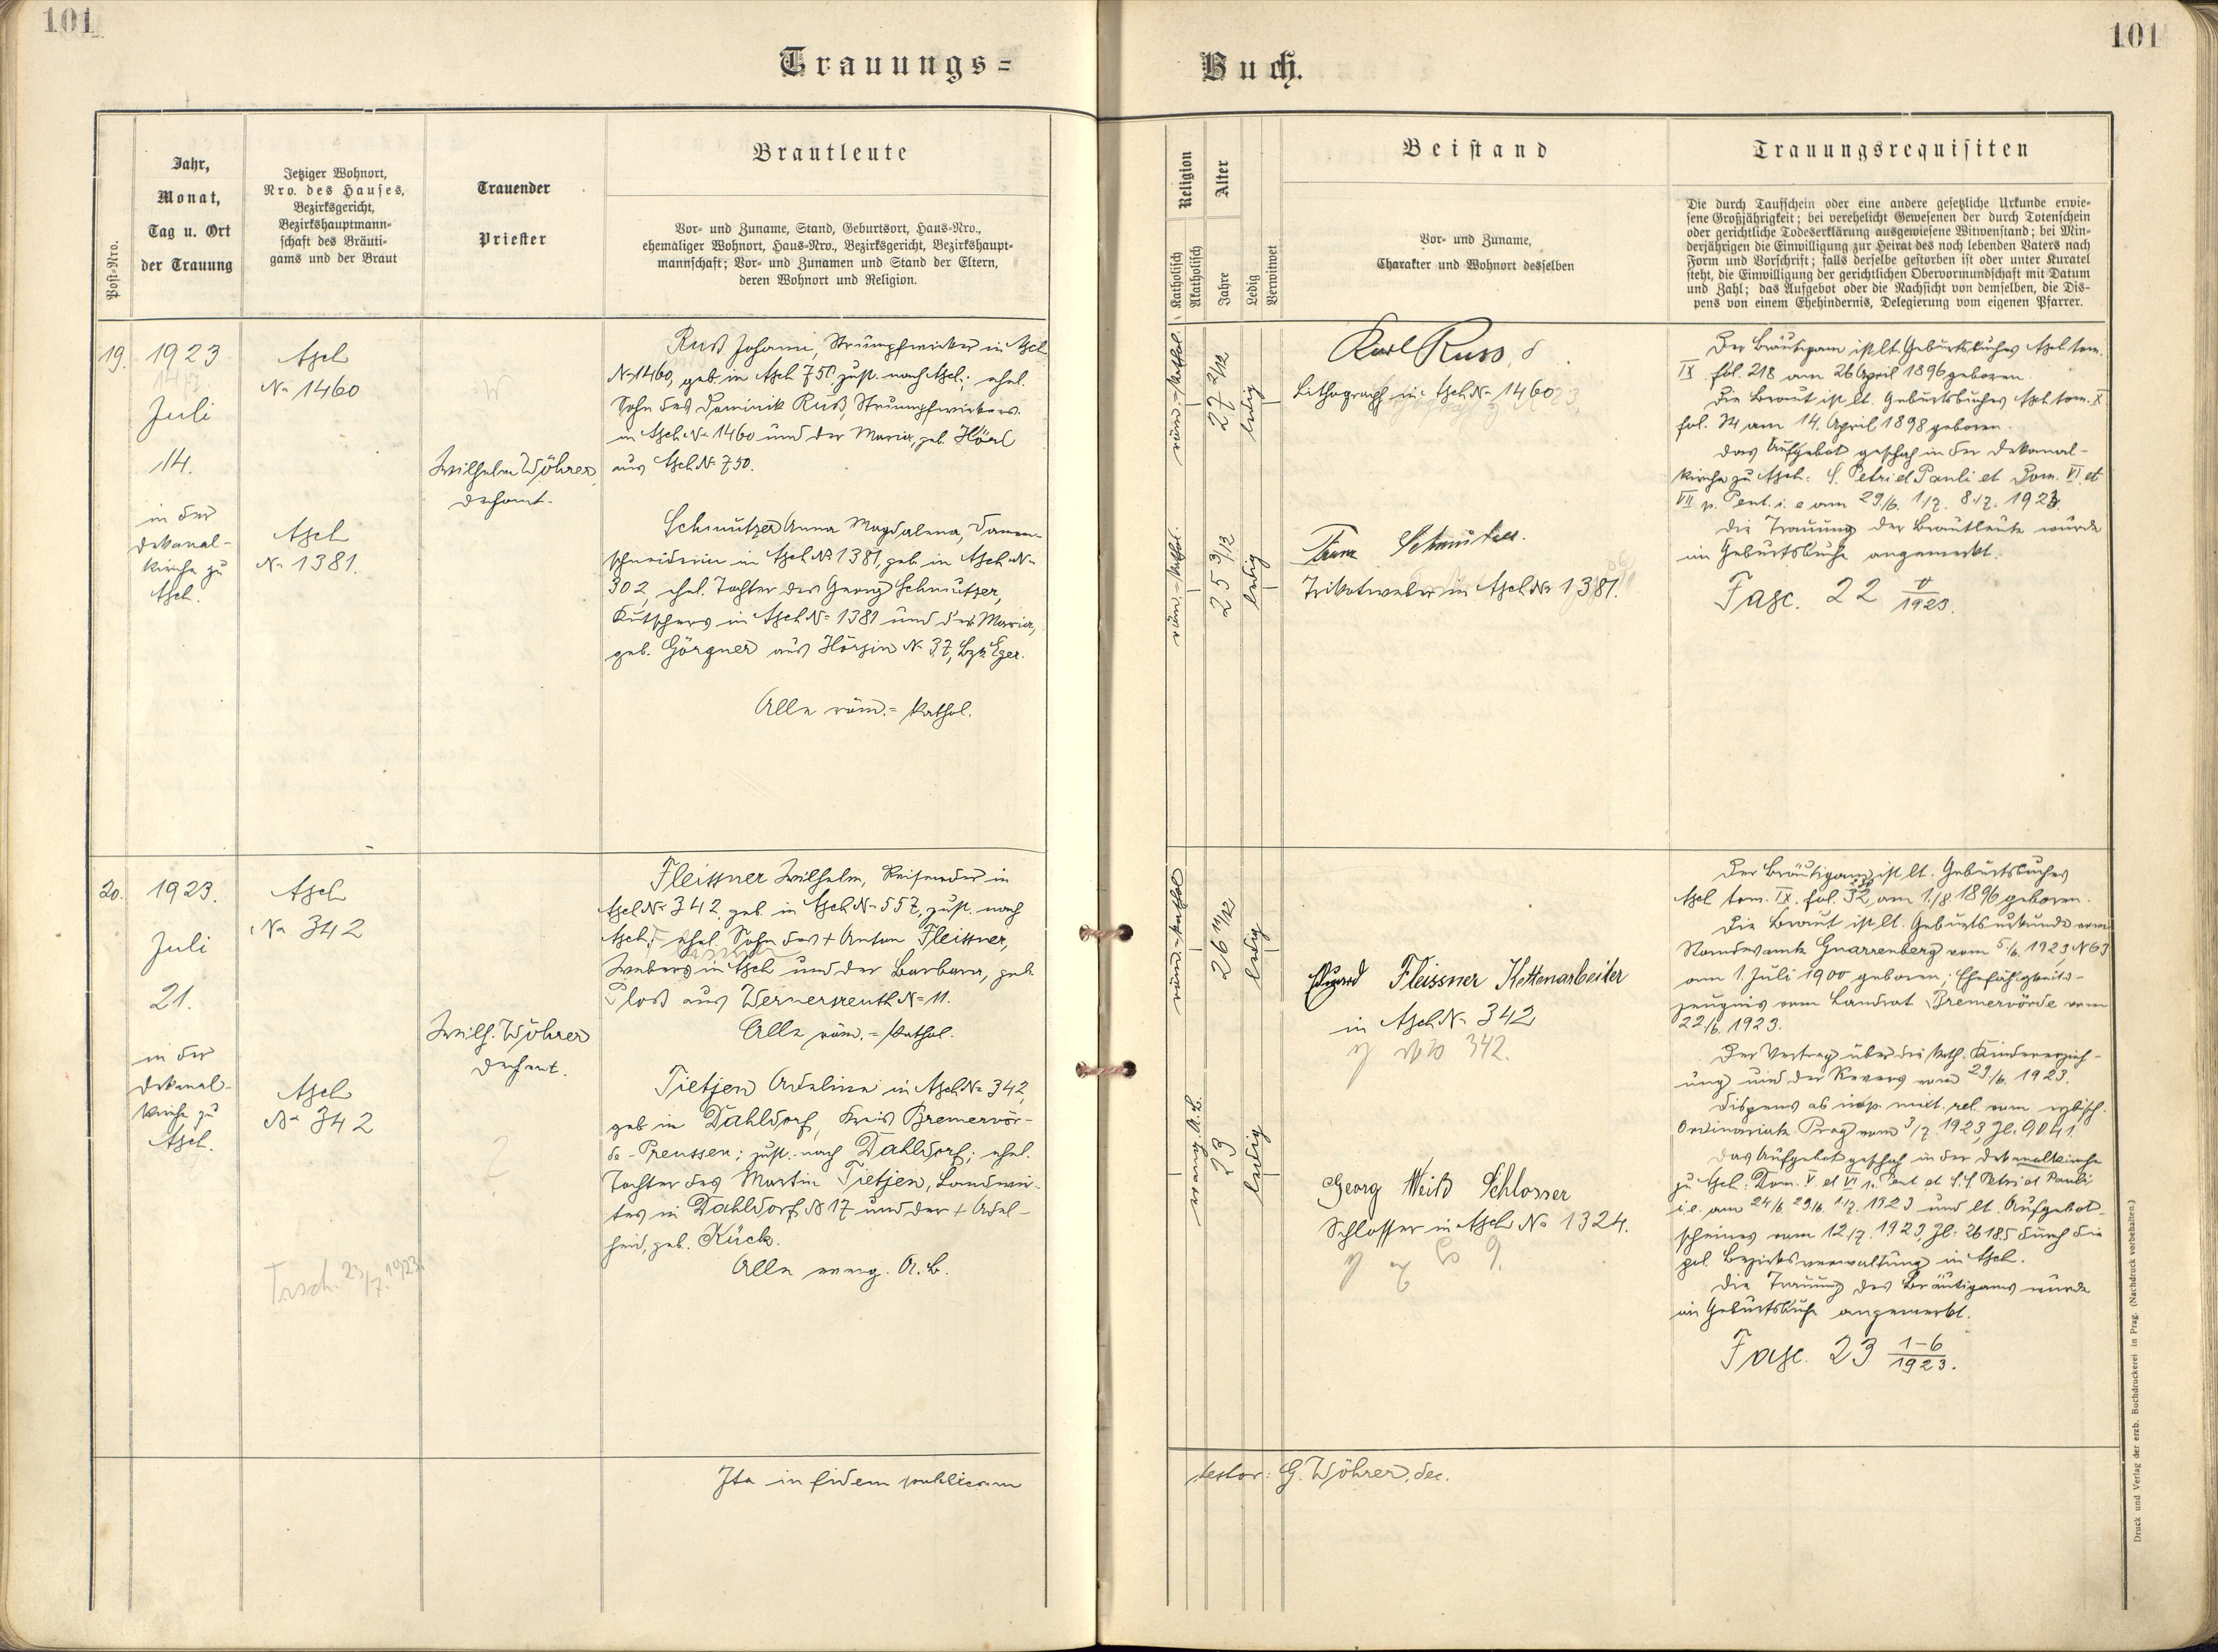 101
101
Trauungs=
Buch.
Post-Nro.
Jahr,
Monat,
Tag u. Ort
der Trauung
Jetziger Wohnort,
Nro. des Hauses,
Bezirksgericht,
Bezirkshauptmann-
schaft des Bräuti-
gams und der Braut
Trauender
Priester
Brautleute
Vor- und Zuname, Stand, Geburtsort, Haus-Nro.,
ehemaliger Wohnort, Haus-Nro., Bezirksgericht, Bezirkshaupt-
mannschaft; Vor- und Zunamen und Stand der Eltern,
deren Wohnort und Religion.
Religion
Katholisch
Akatholisch
Alter
Jahre
Ledig
Verwitwet
Beistand
Vor- und Zuname,
Charakter und Wohnort desselben
Trauungsrequisiten
Die durch Taufschein oder eine andere gesetzliche Urkunde erwie-
sene Großjährigkeit; bei verehelicht Gewesenen der durch Totenschein
oder gerichtliche Todeserklärung ausgewiesene Witwenstand; bei Min-
derjährigen die Einwilligung zur Heirat des noch lebenden Vaters nach
Form und Vorschrift; falls derselbe gestorben ist oder unter Kuratel
steht, die Einwilligung der gerichtlichen Obervormundschaft mit Datum
und Zahl; das Aufgebot oder die Nachsicht von demselben, die Dis-
pens von einem Ehehindernis, Delegierung vom eigenen Pfarrer.
19.
1923
14/7.
Juli
14.
in der
Dekanal-
kirche zu
Asch.
Asch
No 1460
Asch
No 1381.
Wilhelm Wöhrer,
Dechant.
Ruß Johann, Strumpfwirker in Asch
No 1460, geb. in Asch 750, zust. nach Asch; ehel.
Sohn des Dominik Ruß, Strumpfwirkers
in Asch No 1460 und der Maria, geb. Hösl
aus Asch No 750.
Schmutzer Anna Magdalena, Damen-
schneiderin in Asch No 1381, geb. in Asch No
302, ehel. Tochter des Georg Schmutzer,
Kutschers in Asch No 1381 und der Maria,
geb. Görgner aus Hörsin No 37, Bzk Eger.
Alle röm.=kathol.
röm.-kathol.
27 2/12
ledig
röm.-kathol.
25 3/12
ledig
Karl Russ,
Lithograph in Asch No 1460
Trikotweber in Asch No 1381.
Der Bräutigam ist lt. Geburtsbuches Asch tom.
IX. fol. 218 am 26 April 1896 geboren.
Die Braut ist lt. Geburtsbuches Asch tom. X
fol. 34 am 14. April 1898 geboren.
Das Aufgebot geschah in der Dekanal-
kirche zu Asch: S. Petri et Pauli et Dom. VI et
VII p. Pent. i. e am 29/6. 1/7. 8./7. 1923.
Die Trauung der Brautleute wurde
im Geburtsbuche angemerkt.
Fasc. 22 V/1923.
20.
1923.
Juli
21.
in der
Dekanal-
kirche zu
Asch.
Asch
No 342
Asch
No 342
Wilh. Wöhrer
Dechant.
Fleissner Wilhelm, Reisender in
Asch No 342, geb. in Asch No 557, zust. nach
Asch; ehel. Sohn des + Anton Fleissner,
Webers in Asch und der Barbara, geb.
Ploß aus Wernersreuth No 11.
Alle röm.=kathol.
Tietjen Adeline in Asch No 342,
geb in Dahldorf, Kreis Bremervör-
de-Preussen; zust. nach Dahldorf; ehel.
Tochter des Martin Tietjen, Landwir-
tes in Dahldorf No 17 und der + Adel-
heid, geb. Kück.
Alle evang. A. B.
röm.-kathol
26 11/12
ledig
evang. A. B.
23
ledig
Eduard Fleissner Kettenarbeiter
in Asch No 342
342.
Georg Weiß Schlosser
Schlosser in Asch No 1324.
Der Bräutigam ist lt. Geburtsbuches
Asch tom. IX. fol. 232 am 1./8 1896 geboren.
Die Braut ist lt. Geburtsurkunde vom
Standesamte Gnarrenberg vom 5./6. 1923, No 63
am 1. Juli 1900 geboren; Ehefähigkeits-
zeugnis vom Landrat Bremervörde vom
22./6. 1923.
Der Vertrag über die kath. Kindererzieh-
ung und der Revers vom 29./6. 1923.
Dispens ab imp. mixt. rel. vom erzbisch.
Ordinariate Prag vom 3/7. 1923, Zl. 9041.
Das Aufgebot geschah in der Dekanalkirche
zu Asch: Dom. V et VI p. Pent et S.S Petri et Pauli
i.e. am 24/6. 29/6. 1/7. 1923 und lt. Aufgebot-
scheines vom 12./7. 1923, Zl. 26185 durch die
pol. Bezirksverwaltung in Asch.
Die Trauung des Bräutigams wurde
im Geburtsbuche angemerkt.
Fasc. 23 1-6/1923.
Ita in fidem publicam
testor: G. Wöhrer, dec.
Druck und Verlag der erzb. Buchdruckerei in Prag. (Nachdruck verbehalten.)